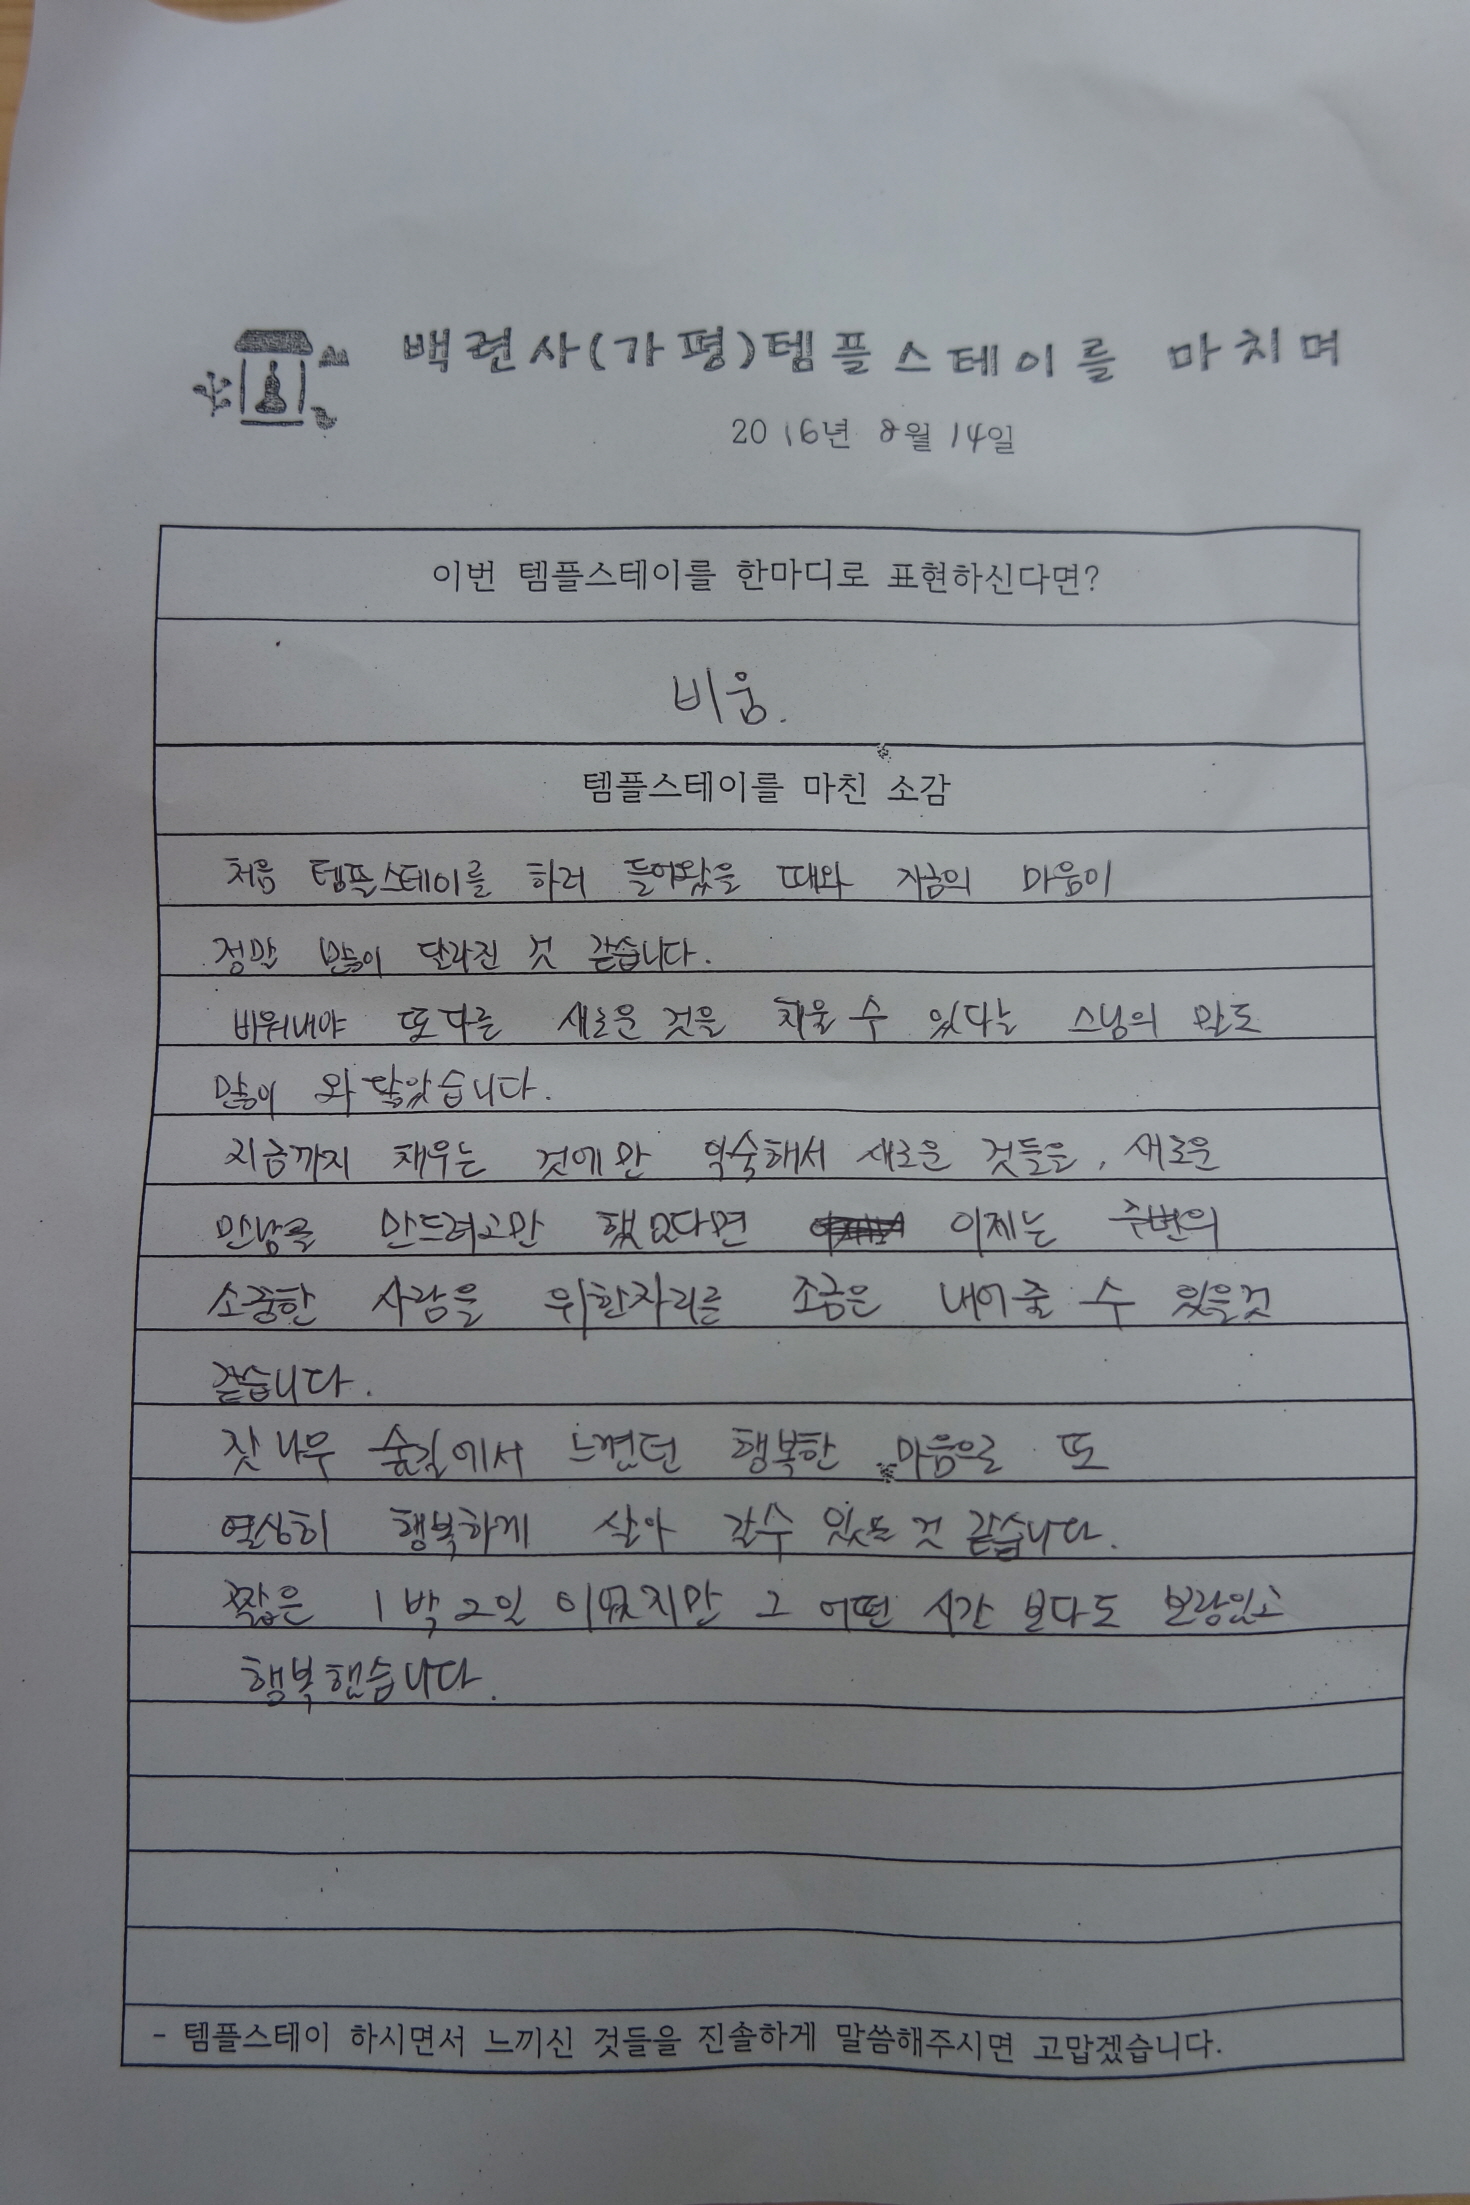 백련사(가평)템플스테이를 마치며
2016년 8월 14일
이번 템플스테이를 한마디로 표현하신다면?
비움.
템플스테이를 마친 소감
처음 템플스테이를 하러 들어왔을 때와 지금의 마음이
정말 많이 달라진 것 같습니다.
비워내야 또다른 새로운 것을 채울 수 있다는 스님의 말도
많이 와 닿았습니다.
지금까지 채우는 것에만 익숙해서 새로운 것들을, 새로운
만남을 만드려고만 했었다면 이제는 주변의
소중한 사람을 위한자리를 조금은 내어줄 수 있을것
같습니다.
잣나무 숲길에서 느꼈던 행복한 마음으로 또
열심히 행복하게 살아 갈수 있는 것 같습니다.
짧은 1박2일 이었지만 그 어떤 시간 보다도 보람있고
행복했습니다.
- 템플스테이 하시면서 느끼신 것들을 진솔하게 말씀해주시면 고맙겠습니다.